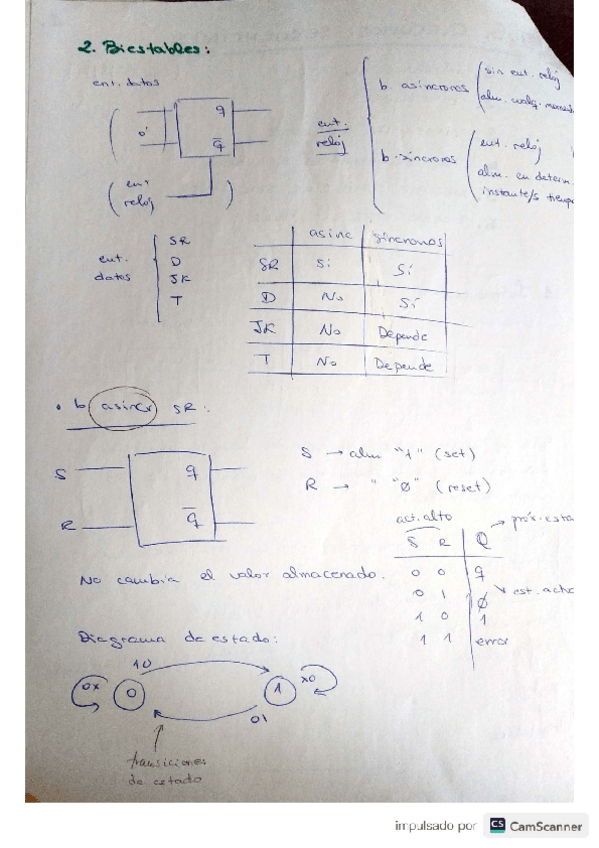 2. Biestables:
ent. datos
q
q̅
o'
ent
reloj
ent.
reloj
b. asíncronos
sin ent. reloj
alm. cualq. momento
b. síncronos
ent. reloj
alm. en determ.
instante/s tiempo
ent.
datos
SR
D
JK
T
asinc síncronos
SR Sí Sí
D No Sí
JK No Depende
T No Depende
• b asíncr SR:
S
R
q
q̅
S → alm "1" (set)
R → " "0" (reset)
act. alto
próx. esta
S R Q
0 0 q
est. actu
0 1 0
1 0 1
1 1 error
No cambia el valor almacenado.
Diagrama de estado:
10
0x 0 1 x0
01
transiciones
de estado
impulsado por CS CamScanner